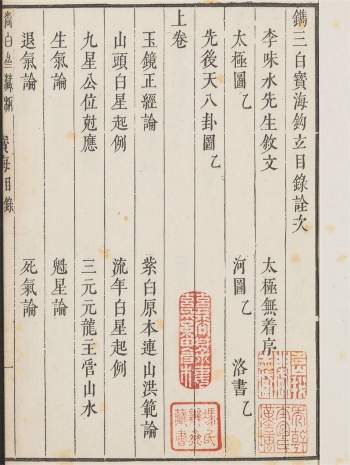 鐫三白寶海鈎玄目錄詮次
李味水先生敘文　太極無着序
太極圖乙　河圖乙　洛書乙
先後天八卦圖乙
上卷
玉鏡正經論　紫白原本連山洪範論
山頭白星起例　流年白星起例
九星公位尅應　三元元龍主官山水
生氣論　魁星論
退氣論　死氣論
寶海目錄
一